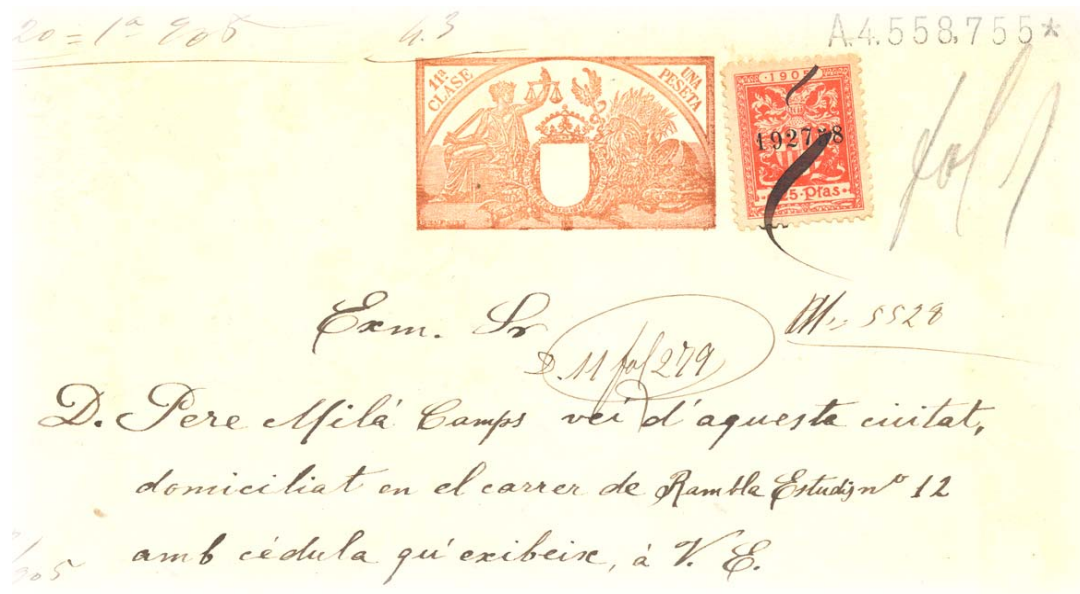 20 = 1ª 905
4.3
A.4.558,755*
11ª CLASE
UNA PESETA
1905
192758
25 Ptas
fol 1
Exm. Sr
M. 5528
D. 11 fol 279
D. Pere Milá Camps veí d'aquesta ciutat,
domiciliat en el carrer de Rambla Estudis nº 12
amb cédula qu'exibeix, á V. E.
905